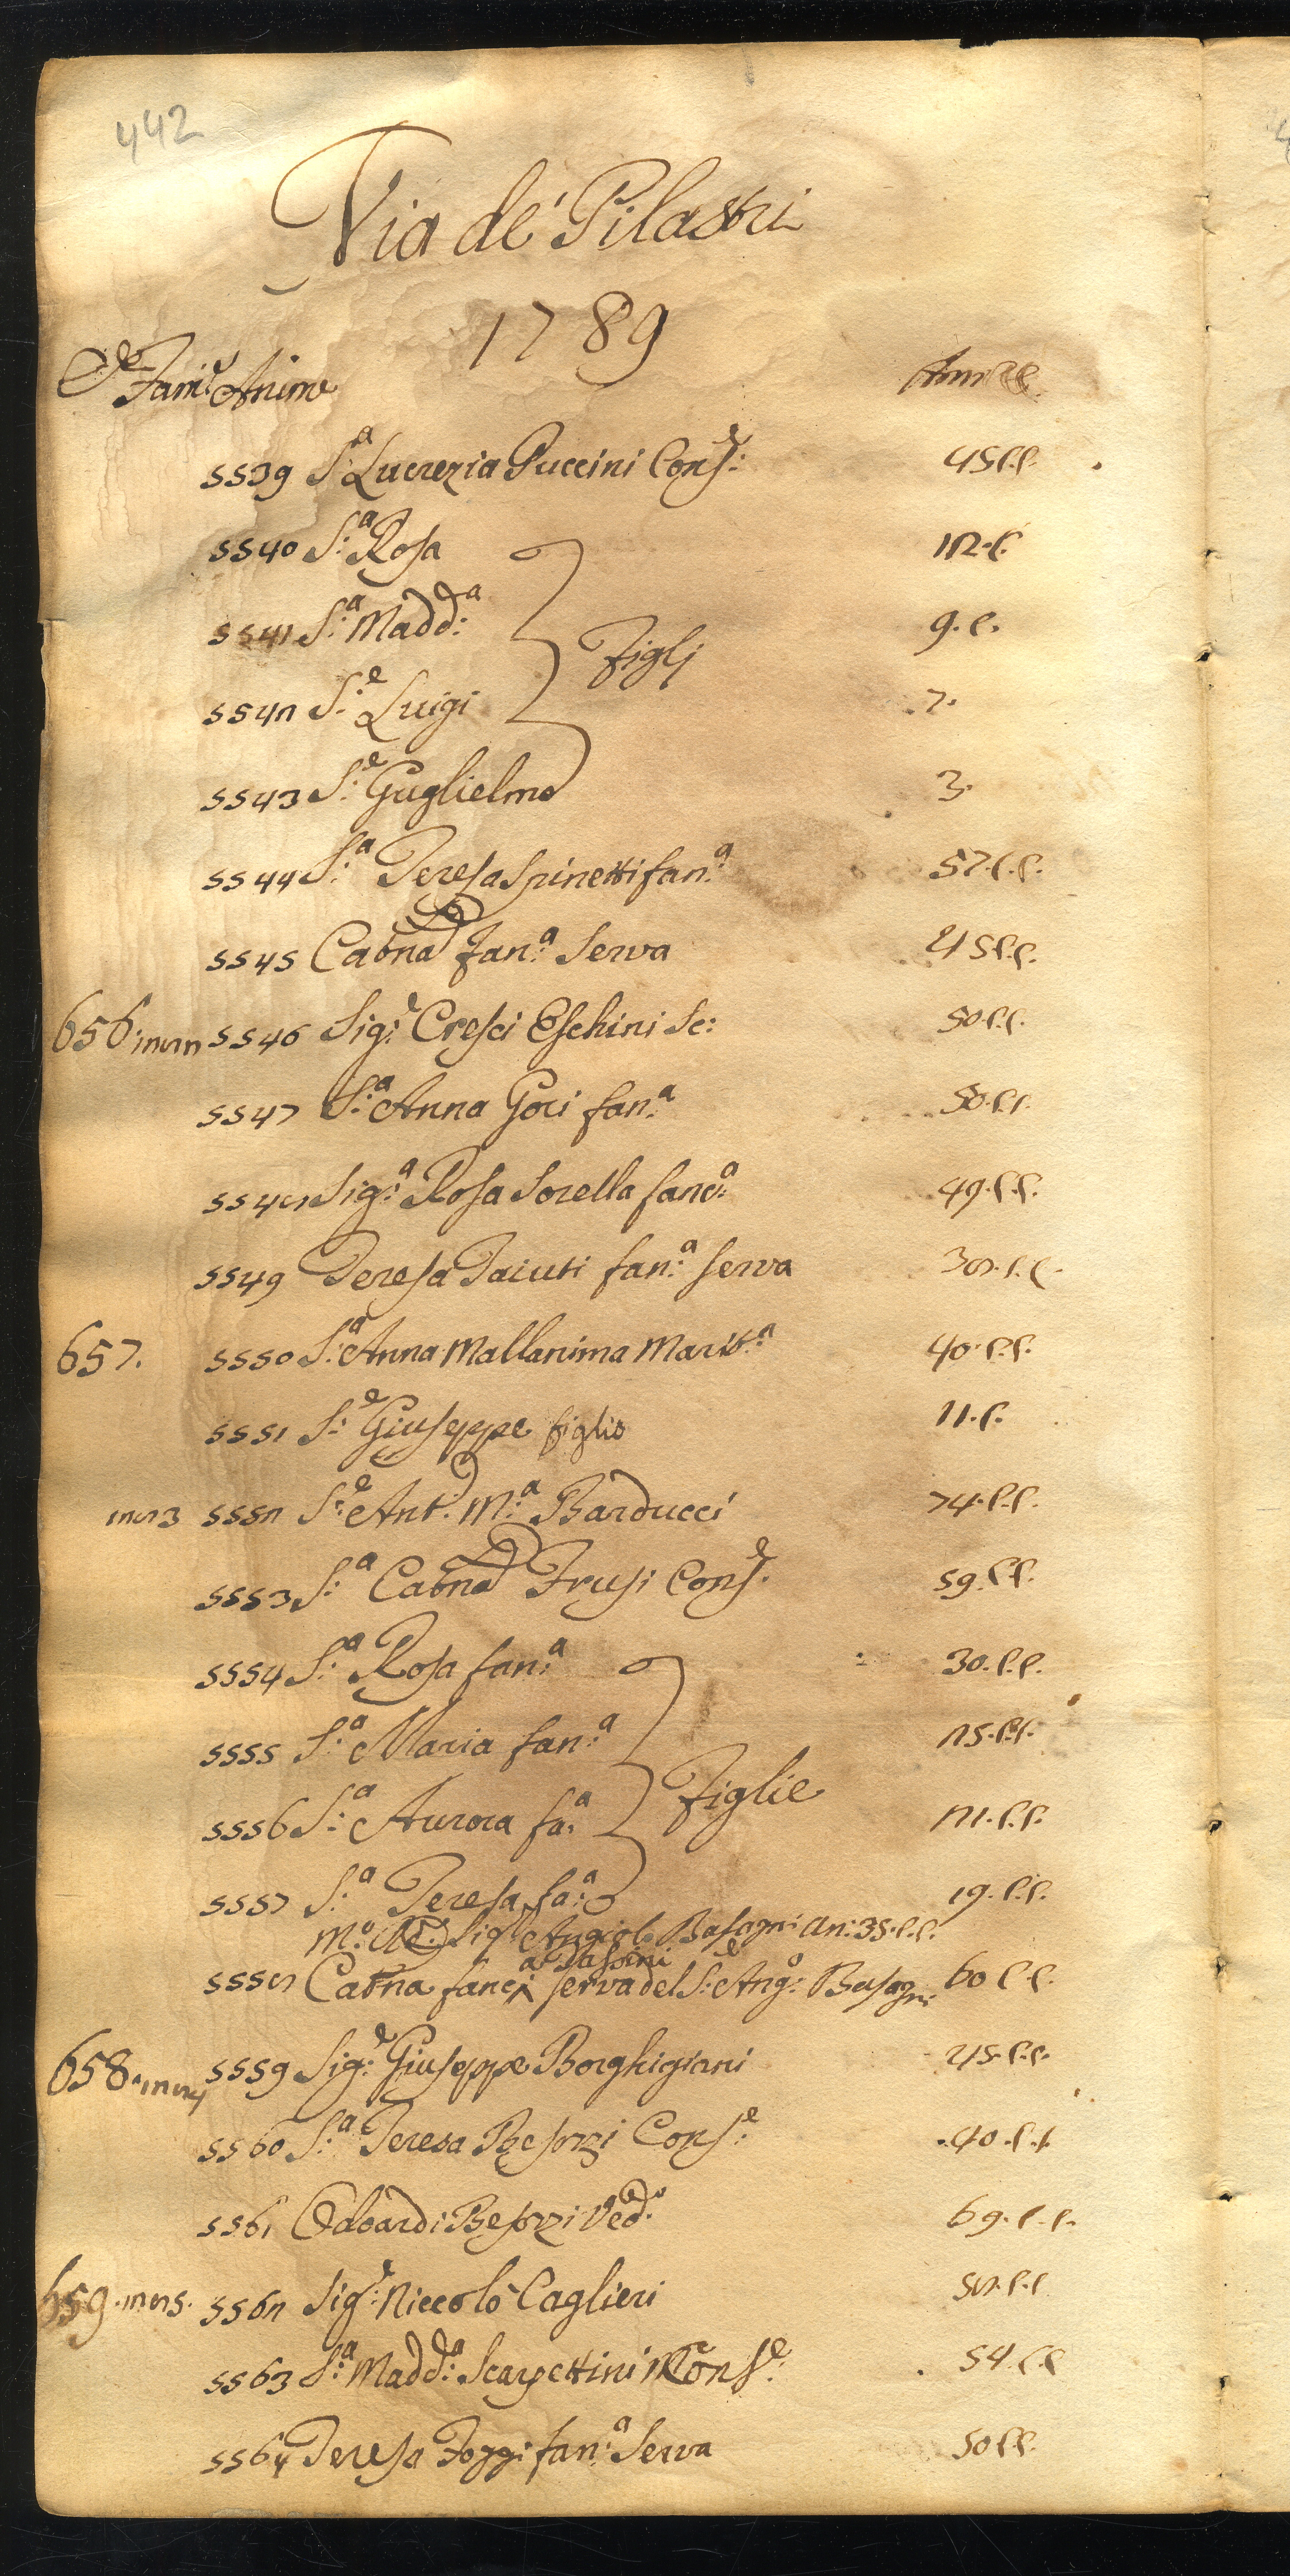 442
Via de' Pilastri
1789
Fam.e Anime
5539 S.a Lucrezia Puccini Cons.e 45 c.c.
5540 S.a Rosa 12. c.
5541 S.a Madd.a 9. c.
Figlj
5542 S.e Luigi 7.
5543 S.e Guglielmo 3.
5544 S.a Teresa Spinetti fan.a 57. c.c.
5545 Catna fan.a Serva 45 c.c.
656. 5546 Sig.e Cresci Eschini Sc: 50. c.c.
5547 S.a Anna Gori fan.a 50. c.c.
5548 Sig.a Rosa Sorella fanc.a 49. c.c.
5549 Teresa Taiuti fan.a serva 38. c.c.
657. 5550 S.a Anna Mallanima Marit.a 40. c.c.
5551 S.e Giuseppe figlio 11. c.
5552 S.e Ant.o M.a Barducci 74. c.c.
5553 S.a Catna Frusi Cons.e 59. c.c.
5554 S.a Rosa fan.a 30. c.c.
5555 S.a Maria fan.a 25. c.c.
Figlie
5556 S.a Aurora fa.a 21. c.c.
5557 S.a Teresa fa.a 19. c.c.
Sig.e Angiolo Basagni an: 35. c.c.
5558 Catna fanc.a Sassini serva del S.e Ang.o Basagni 60 c.c.
658. 5559 Sig.e Giuseppe Borghigiani 45. c.c.
5560 S.a Teresa Besozzi Cons.e 40. c.c.
5561 Odoardi Besozzi Ved.o 69. c.c.
659. 5562 Sig.e Niccolò Caglieri 58. c.c.
5563 S.a Madd.a Scarpettini Cons.e 54. c.c.
5564 Teresa Foggi fan.a Serva 50 c.c.